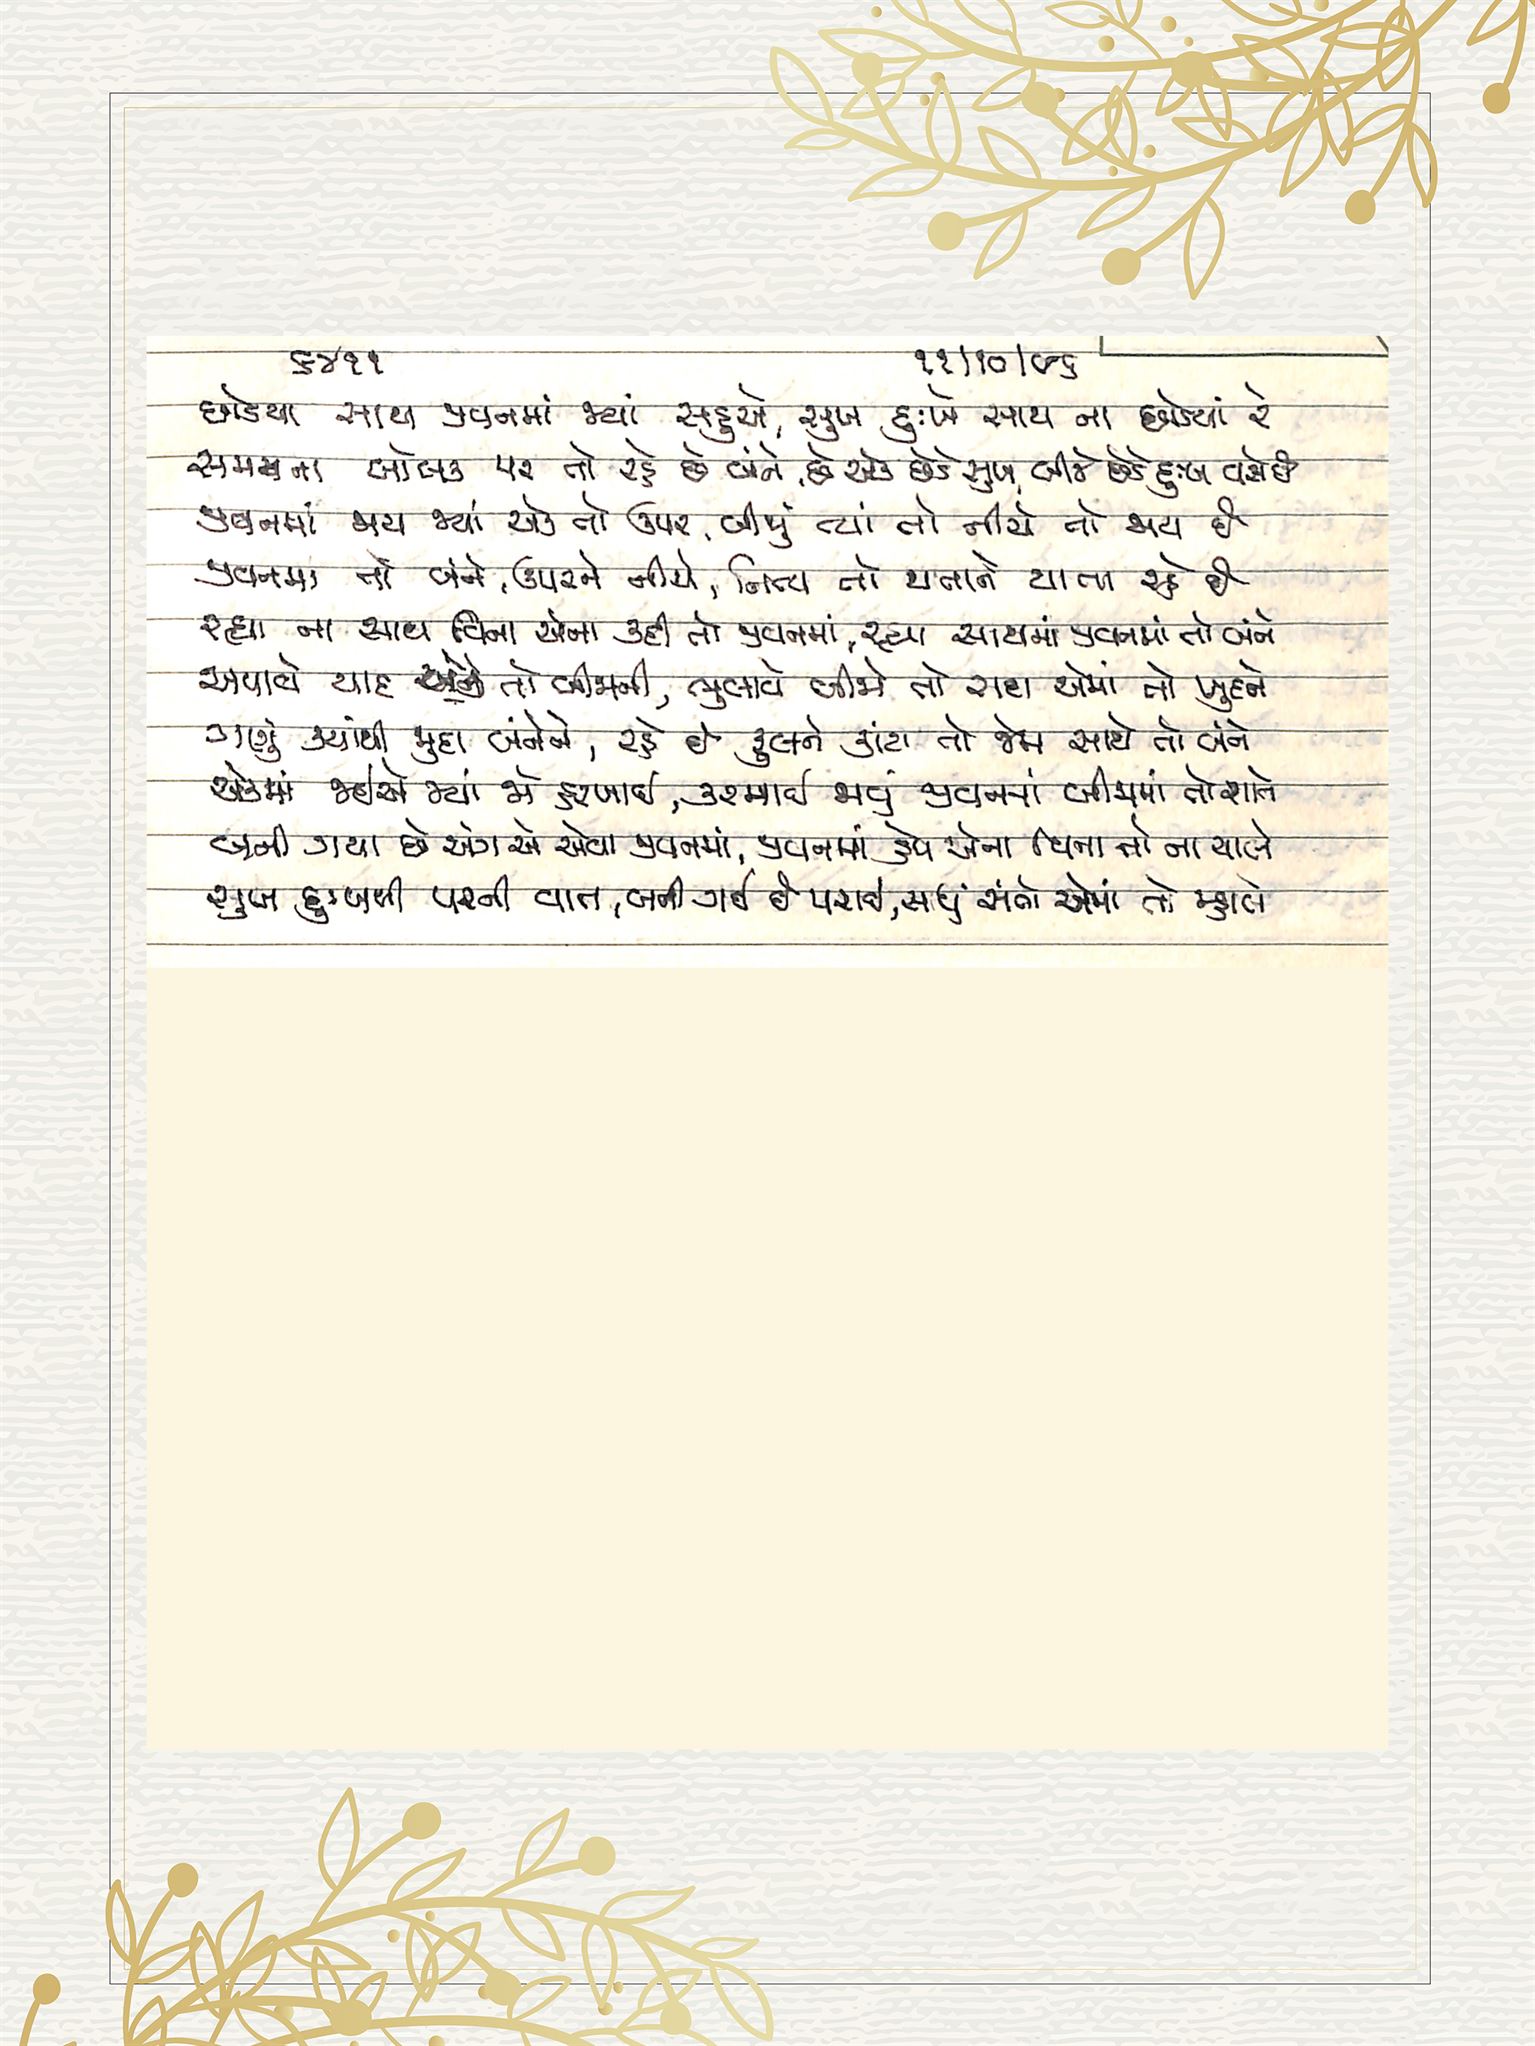 ૬૪૧૧ ૧૧/૧૦/૯૬
છોડયા સાથ જીવનમાં જ્યાં સહુએ, સુખ દુઃખે સાથ ના છોડયાં રે
સમયના લોલક પર તો રહે છે બંને, છે એક છેડે સુખ, બીજે છેડે દુઃખ વસે છે
જીવનમાં જાય જ્યાં એક તો ઉપર, બીજું ત્યાં તો નીચે તો જાય છે
જીવનમાં તો બંને, ઉપરને નીચે, નિત્ય તો થાતાને થાતા રહે છે
રહ્યા ના સાથ વિના એના કદી તો જીવનમાં, રહ્યા સાથમાં જીવનમાં તો બંને
અપાવે યાદ તો બીજાની, ભુલાવે બીજો તો સાથ એમાં તો ખુદને
ગણું ક્યાંથી જુદા બંનેને, રહે છે ફુલને કાંટા તો જેમ સાથે તો બંને
એકમાં જઈએ જ્યાં જો હરખાઈ, કરમાઈ જાવું જીવનમાં બીજામાં તો શાને
બની ગયા છે અંગ એ એવા જીવનમાં, જીવનમાં હવે એના વિના તો ના ચાલે
સુખ દુઃખની પરની વાત, બની ગઈ છે પરાઈ, સાધુ સંતો એમાં તો મ્હાલે